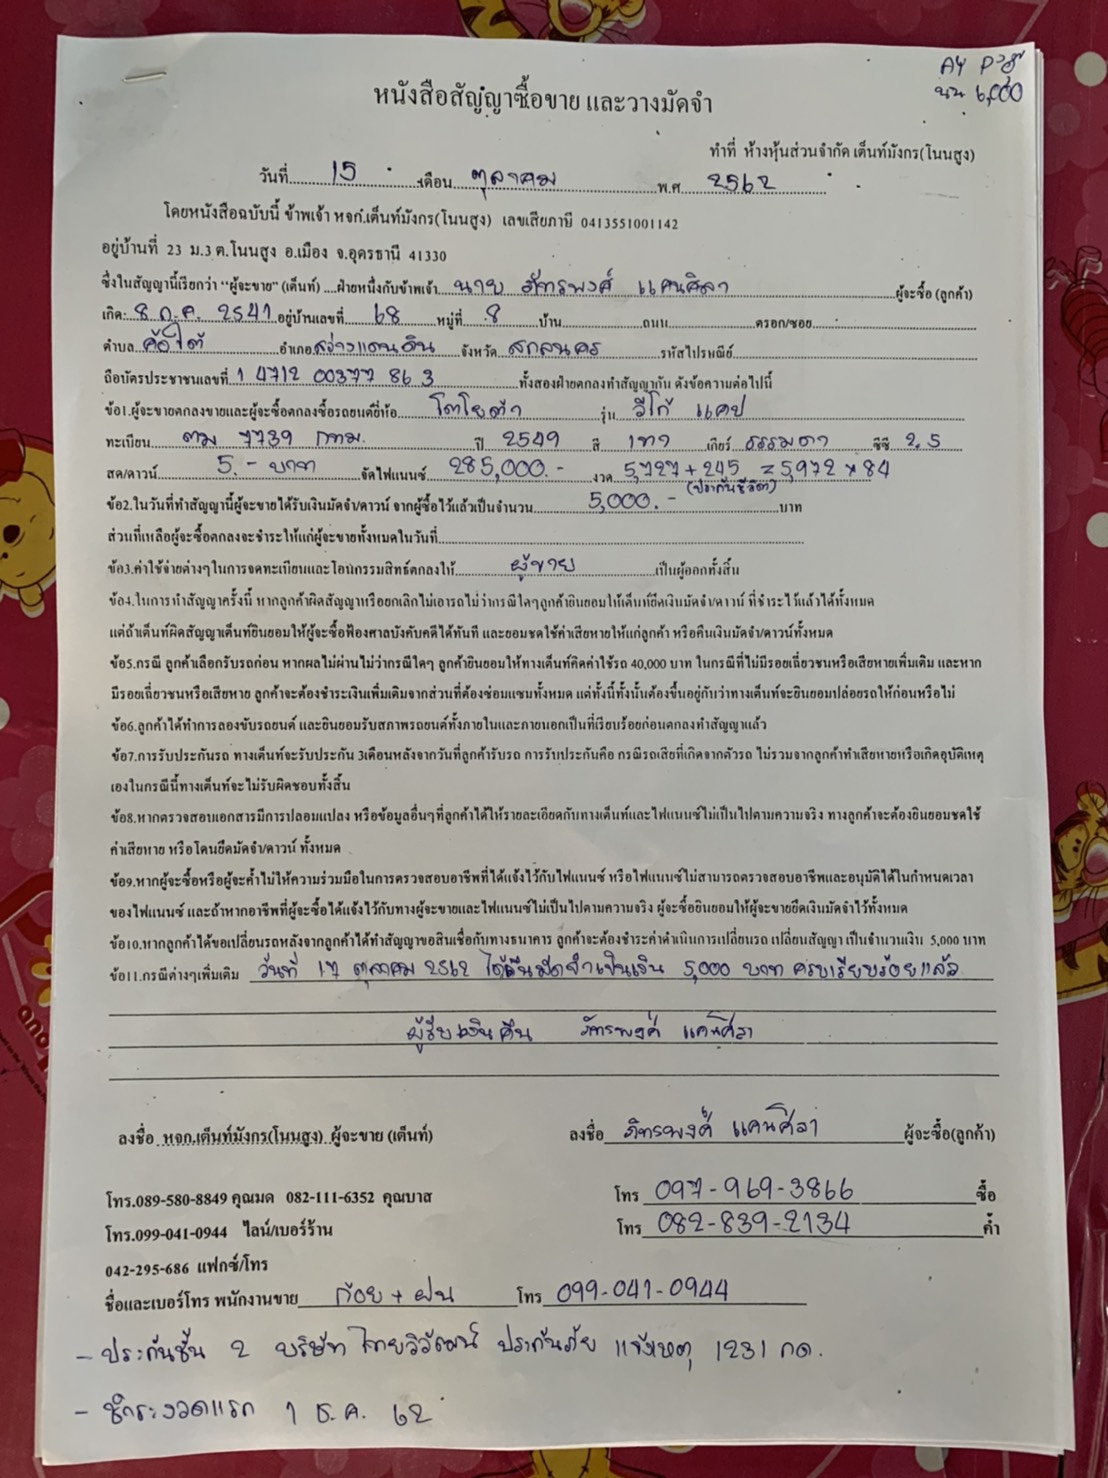 AY
นน 6,000
หนังสือสัญญาซื้อขาย และวางมัดจำ
ทำที่ ห้างหุ้นส่วนจำกัด เต็นท์มังกร(โนนสูง)
วันที่ 15 เดือน ตุลาคม พ.ศ 2562
โดยหนังสือฉบับนี้ ข้าพเจ้า หจก.เต็นท์มังกร(โนนสูง) เลขเสียภาษี 0413551001142
อยู่บ้านที่ 23 ม.3 ต.โนนสูง อ.เมือง จ.อุดรธานี 41330
ซึ่งในสัญญานี้เรียกว่า "ผู้จะขาย" (เต็นท์) ....ฝ่ายหนึ่งกับข้าพเจ้า นาย ภัทรพงศ์ แคนศิลา ผู้จะซื้อ (ลูกค้า)
เกิด 8 ก.ค. 2541 อยู่บ้านเลขที่ 68 หมู่ที่ 8 บ้าน ถนน ตรอก/ซอย
ตำบล ค้อใต้ อำเภอ สว่างแดนดิน จังหวัด สกลนคร รหัสไปรษณีย์
ถือบัตรประชาชนเลขที่ 1 4712 00377 86 3 ทั้งสองฝ่ายตกลงทำสัญญากัน ดังข้อความต่อไปนี้
ข้อ1.ผู้จะขายตกลงขายและผู้จะซื้อตกลงซื้อรถยนต์ยี่ห้อ โตโยต้า รุ่น วีโก้ แคป
ทะเบียน ตม 7739 กทม. ปี 2549 สี เทา เกียร์ ธรรมดา ซีซี 2.5
สด/ดาวน์ 5.- บาท จัดไฟแนนซ์ 285,000.- งวด 5,727 + 245 = 5,972 x 84
(ประกันชีวิต)
ข้อ2.ในวันที่ทำสัญญานี้ผู้จะขายได้รับเงินมัดจำ/ดาวน์ จากผู้ซื้อไว้แล้วเป็นจำนวน 5,000.- บาท
ส่วนที่เหลือผู้จะซื้อตกลงจะชำระให้แก่ผู้จะขายทั้งหมดในวันที่
ข้อ3.ค่าใช้จ่ายต่างๆในการจดทะเบียนและโอนกรรมสิทธิ์ตกลงให้ ผู้ขาย เป็นผู้ออกทั้งสิ้น
ข้อ4.ในการทำสัญญาครั้งนี้ หากลูกค้าผิดสัญญาหรือยกเลิกไม่เอารถไม่ว่ากรณีใดๆลูกค้ายินยอมให้เต็นท์ยึดเงินมัดจำ/ดาวน์ ที่ชำระไว้แล้วได้ทั้งหมด
แต่ถ้าเต็นท์ผิดสัญญาเต็นท์ยินยอมให้ผู้จะซื้อฟ้องศาลบังคับคดีได้ทันที และยอมชดใช้ค่าเสียหายให้แก่ลูกค้า หรือคืนเงินมัดจำ/ดาวน์ทั้งหมด
ข้อ5.กรณี ลูกค้าเลือกรับรถก่อน หากผลไม่ผ่านไม่ว่ากรณีใดๆ ลูกค้ายินยอมให้ทางเต็นท์คิดค่าใช้รถ 40,000 บาท ในกรณีที่ไม่มีรอยเฉี่ยวชนหรือเสียหายเพิ่มเติม และหาก
มีรอยเฉี่ยวชนหรือเสียหาย ลูกค้าจะต้องชำระเงินเพิ่มเติมจากส่วนที่ต้องซ่อมแซมทั้งหมด แต่ทั้งนี้ทั้งนั้นต้องขึ้นอยู่กับว่าทางเต็นท์จะยินยอมปล่อยรถให้ก่อนหรือไม่
ข้อ6.ลูกค้าได้ทำการลองขับรถยนต์ และยินยอมรับสภาพรถยนต์ทั้งภายในและภายนอกเป็นที่เรียบร้อยก่อนตกลงทำสัญญาแล้ว
ข้อ7.การรับประกันรถ ทางเต็นท์จะรับประกัน 3เดือนหลังจากวันที่ลูกค้ารับรถ การรับประกันคือ กรณีรถเสียที่เกิดจากตัวรถ ไม่รวมจากลูกค้าทำเสียหายหรือเกิดอุบัติเหตุ
เองในกรณีนี้ทางเต็นท์จะไม่รับผิดชอบทั้งสิ้น
ข้อ8.หากตรวจสอบเอกสารมีการปลอมแปลง หรือข้อมูลอื่นๆที่ลูกค้าได้ให้รายละเอียดกับทางเต็นท์และไฟแนนซ์ไม่เป็นไปตามความจริง ทางลูกค้าจะต้องยินยอมชดใช้
ค่าเสียหาย หรือโดนยึดมัดจำ/ดาวน์ ทั้งหมด
ข้อ9.หากผู้จะซื้อหรือผู้จะค้ำไม่ให้ความร่วมมือในการตรวจสอบอาชีพที่ได้แจ้งไว้กับไฟแนนซ์ หรือไฟแนนซ์ไม่สามารถตรวจสอบอาชีพและอนุมัติได้ในกำหนดเวลา
ของไฟแนนซ์ และถ้าหากอาชีพที่ผู้จะซื้อได้แจ้งไว้กับทางผู้จะขายและไฟแนนซ์ไม่เป็นไปตามความจริง ผู้จะซื้อยินยอมให้ผู้จะขายยึดเงินมัดจำไว้ทั้งหมด
ข้อ10.หากลูกค้าได้ขอเปลี่ยนรถหลังจากลูกค้าได้ทำสัญญาขอสินเชื่อกับทางธนาคาร ลูกค้าจะต้องชำระค่าดำเนินการเปลี่ยนรถ เปลี่ยนสัญญา เป็นจำนวนเงิน 5,000 บาท
ข้อ11.กรณีต่างๆเพิ่มเติม วันที่ 17 ตุลาคม 2562 ได้คืนมัดจำเป็นเงิน 5,000 บาท ครบเรียบร้อยแล้ว
ผู้รับเงินคืน ภัทรพงศ์ แคนศิลา
ลงชื่อ หจก.เต็นท์มังกร(โนนสูง) ผู้จะขาย (เต็นท์) ลงชื่อ ภัทรพงศ์ แคนศิลา ผู้จะซื้อ(ลูกค้า)
โทร.089-580-8849 คุณมด 082-111-6352 คุณบาส โทร 097-969-3866 ซื้อ
โทร.099-041-0944 ไลน์/เบอร์ร้าน โทร 082-839-2134 ค้ำ
042-295-686 แฟกซ์/โทร
ชื่อและเบอร์โทร พนักงานขาย ก้อย + ฝน โทร 099-041-0944
- ประกันชั้น 2 บริษัท ไทยวิวัฒน์ ประกันภัย แจ้งเหตุ 1231 กด.
- ชำระงวดแรก 1 ธ.ค. 62